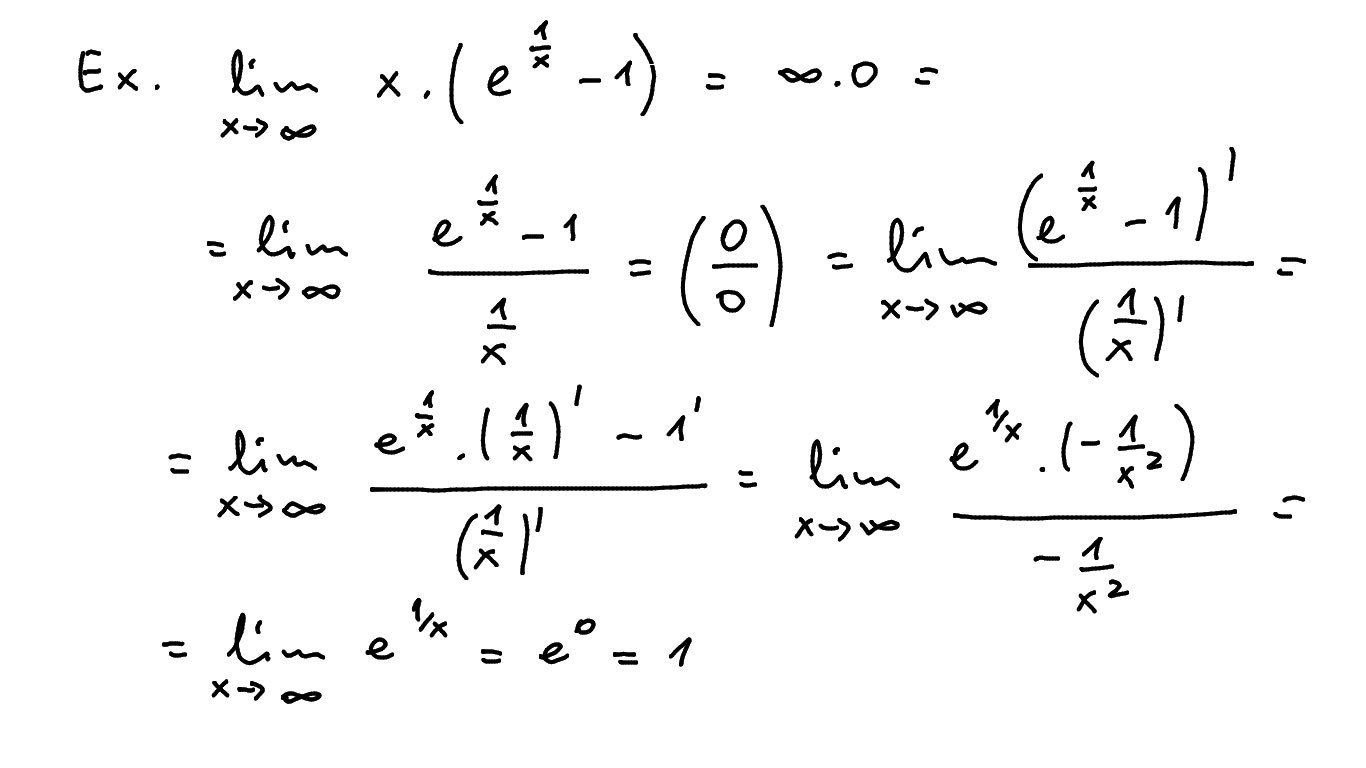 Ex. lim_{x→∞} x · (e^{1/x} − 1) = ∞ · 0 =
= lim_{x→∞} (e^{1/x} − 1)/(1/x) = (0/0) = lim_{x→∞} (e^{1/x} − 1)'/(1/x)' =
= lim_{x→∞} (e^{1/x} · (1/x)' − 1')/(1/x)' = lim_{x→∞} (e^{1/x} · (−1/x²))/(−1/x²) =
= lim_{x→∞} e^{1/x} = e^0 = 1